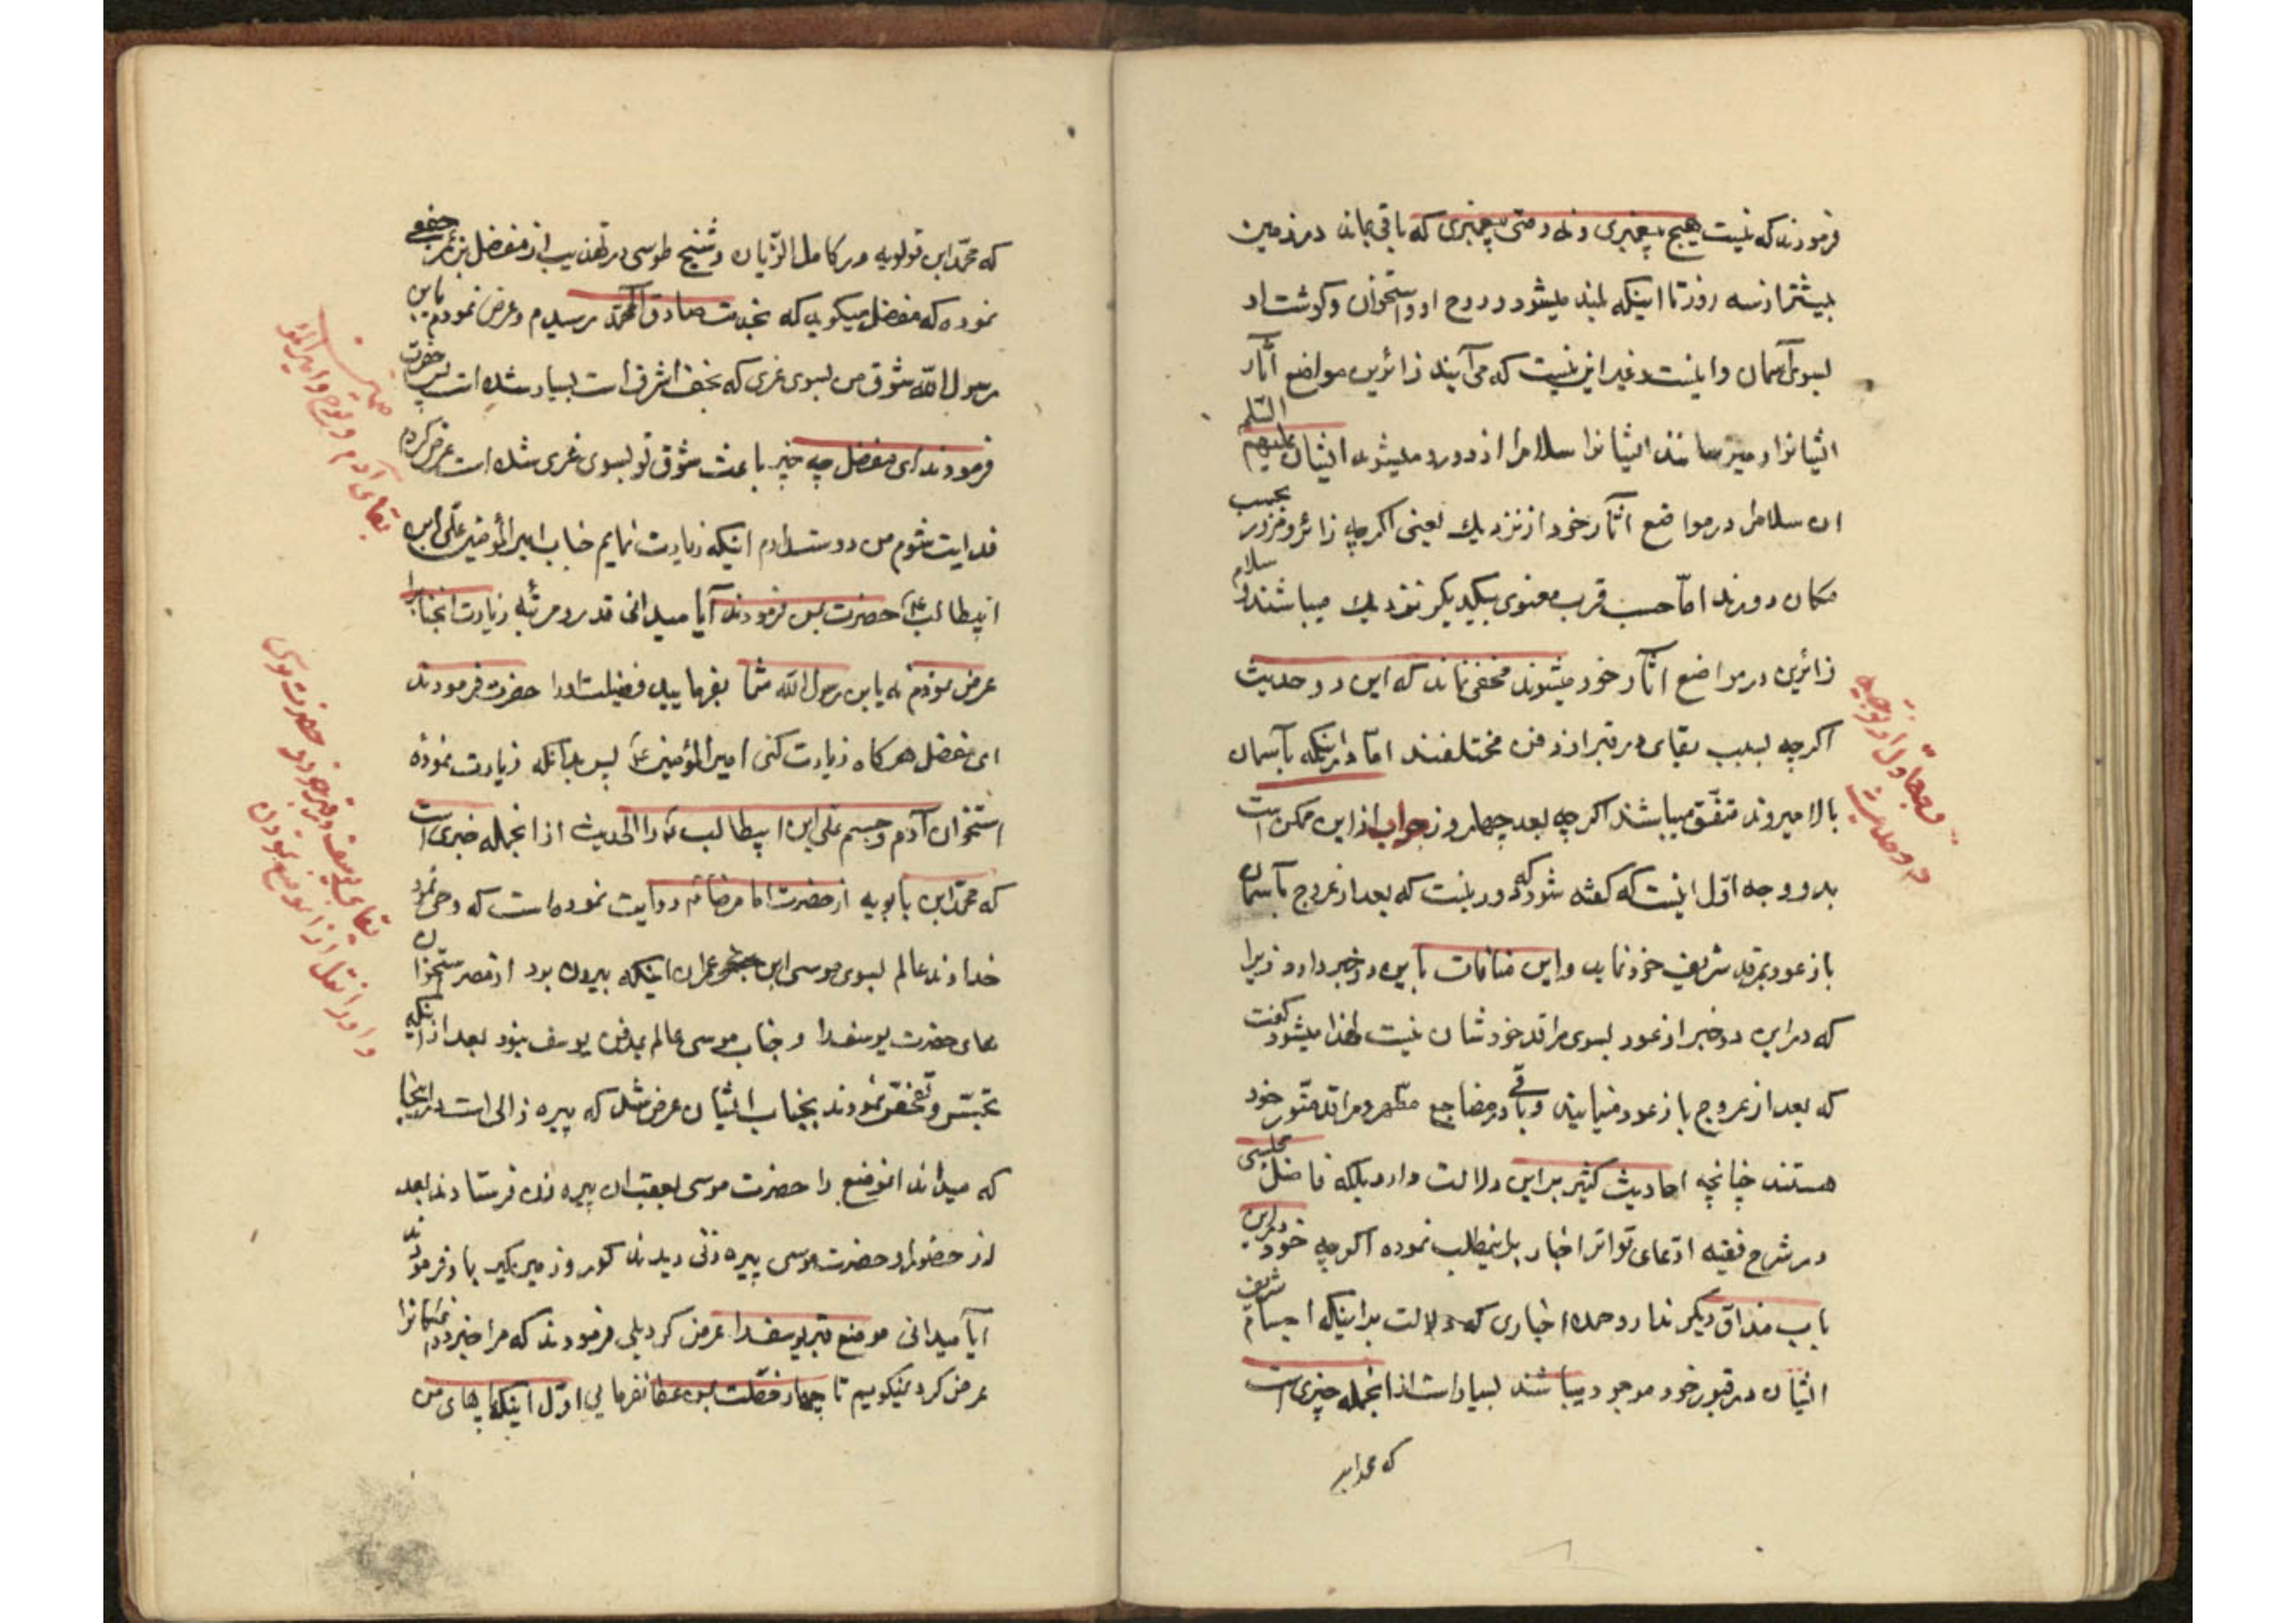 فرمودند که نیست هیچ پیغمبری و نه وصی پیغمبری که باقی بماند در زمین
بیشتر از سه روز تا اینکه بلند میشود روح او و استخوان و کوشت او
بسوی آسمان و اینست و غیر این نیست که می آیند زائرین مواضع آثار
ایشانرا و میرسانند ایشانرا سلام را از دور و میشنوند ایشان علیهم السلم
ان سلام را در مواضع آثار خود از نزدیك یعنی اکرچه زائر و مزور بحسب
مکان دورند اما حسب قرب معنوی بیکدیکر نزدیك میباشند و سلام
زائرین در مواضع آثار خود میشنوند مخفی نماند که این دو حدیث
اکرچه بسبب بقای در قبر از زمن مختلفند اما در اینکه بآسمان
بالا میروند متفق میباشند اکرچه بعد چهار روز جواب از این ممکن است
بدو وجه اول اینست که کفته شود که دور نیست که بعد از عروج بآسمان
باز عود بمرقد شریف خود نماید و این منافات باین دو خبر دارد زیرا
که در این دو خبر از عود بسوی مراقد خودشان نیست لهذا میشود کفت
که بعد از عروج باز عود مینمایند و باقی در مضاجع مطهر و مراقد منور خود
هستند چنانچه احادیث کثیر بر این دلالت دارد بلکه فاضل مجلسی
در شرح فقیه ادعای تواتر اخبار باینمطلب نموده اکرچه خود در این
باب مذاق دیکر ندارد و جمله اخباری که دلالت بر اینکه اجسام شریف
ایشان در قبور خود موجود میباشند بسیار است از انجمله خبری است
که محمد ابن
وجه اول از توجیه
دو حدیث
که محمد ابن قولویه در کامل الزیارت و شیخ طوسی در تهذیب از مفضل بن عمر جعفی
نموده که مفضل میکوید که بخدمت صادق آل محمد رسیدم و عرض نمودم یابن
رسول الله شوق من بسوی غری که نجف اشرف است بسیار شده است پس حضرت
فرمودند ای مفضل چه چیز باعث شوق تو بسوی غری شده است عرض کردم
فدایت شوم من دوست دارم اینکه زیارت نمایم جناب امیر المؤمنین علی ابن
ابیطالب ع را حضرت بمن فرمودند آیا میدانی قدر و مرتبه زیارت انجناب را
عرض نمودم نه یابن رسول الله شما بفرمایید فضیلت اورا حضرت فرمودند
ای مفضل هرکاه زیارت کنی امیر المؤمنین ع پس بدانکه زیارت نموده
استخوان آدم و جسم علی ابن ابیطالب ع را الحدیث از انجمله خبری است
که محمد ابن بابویه از حضرت امام رضا ع روایت نموده است که وحی نمود
خداوند عالم بسوی موسی ابن عمران اینکه بیرون برد از مصر استخوان
های حضرت یوسف را و جناب موسی عالم بمدفن یوسف نبود بعد از اینکه
تجسس و تفحص نمودند بجناب ایشان عرض شد که پیره زالی است در اینجا
که میداند انموضع را حضرت موسی بعقب ان پیره زن فرستادند بعد
از حضور او حضرت موسی پیره زنی دیدند کور و زمین کیر باو فرمودند
آیا میدانی موضع قبر یوسف را عرض کرد بلی فرمودند که مرا خبر ده
عرض کرد نمیکویم تا چهار خصلت بمن عطا نفرمایی اول اینکه پاهای من
بقای آدم و نوح و امیر المؤمنین
بقای یوسف در قبر خود و حضرت موسی
او را نقل از انموضع نمودن